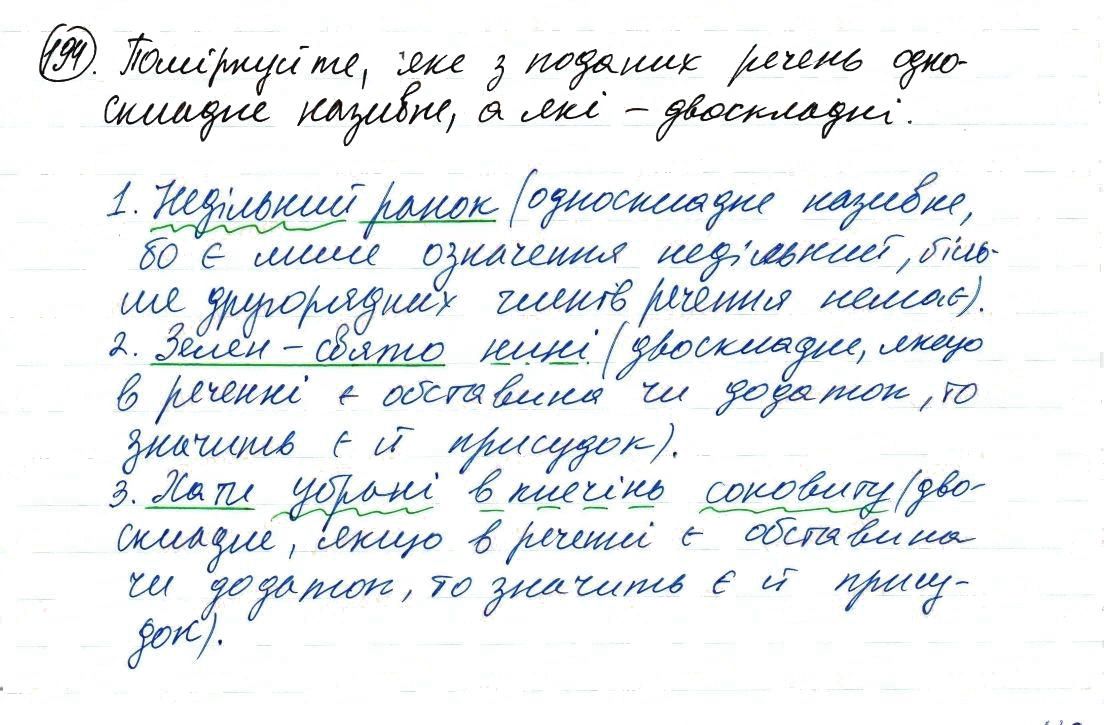 194. Поміркуйте, яке з поданих речень одно-
складне називне, а які – двоскладні.
1. Недільний ранок (односкладне називне,
бо є лише означення недільний, біль-
ше другорядних членів речення немає).
2. Зелен – свято нині (двоскладне, якщо
в реченні є обставина чи додаток, то
значить є й присудок).
3. Хати убрані в клечінь соковиту (дво-
складне, якщо в реченні є обставина
чи додаток, то значить є й прису-
док).